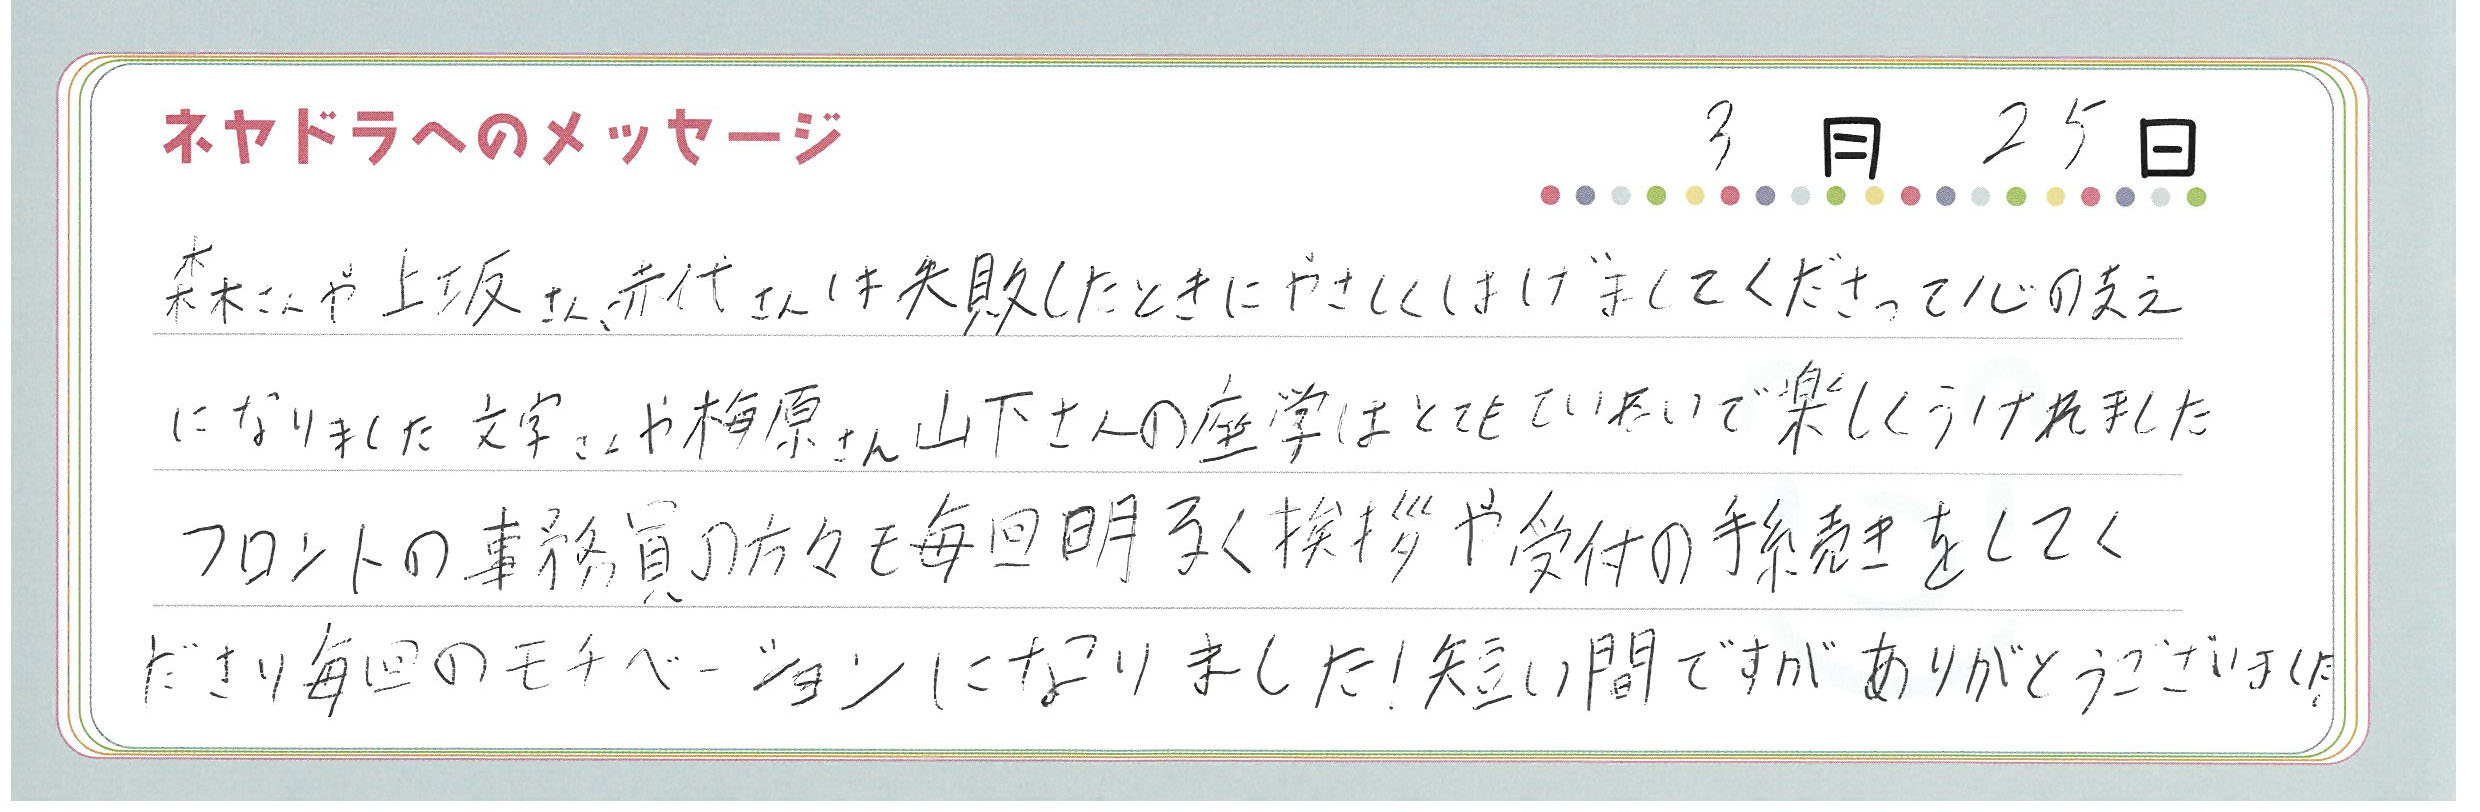 ネヤドラへのメッセージ
3月 25日
森さんや上坂さん、赤代さんは失敗したときにやさしくはげましてくださって心の支え
になりました 文字さんや梅原さん山下さんの座学はとてもていねいで楽しくうけれました
フロントの事務員の方々も毎回明るく挨拶や受付の手続きをしてく
ださり毎回のモチベーションになりました!短い間ですがありがとうございました